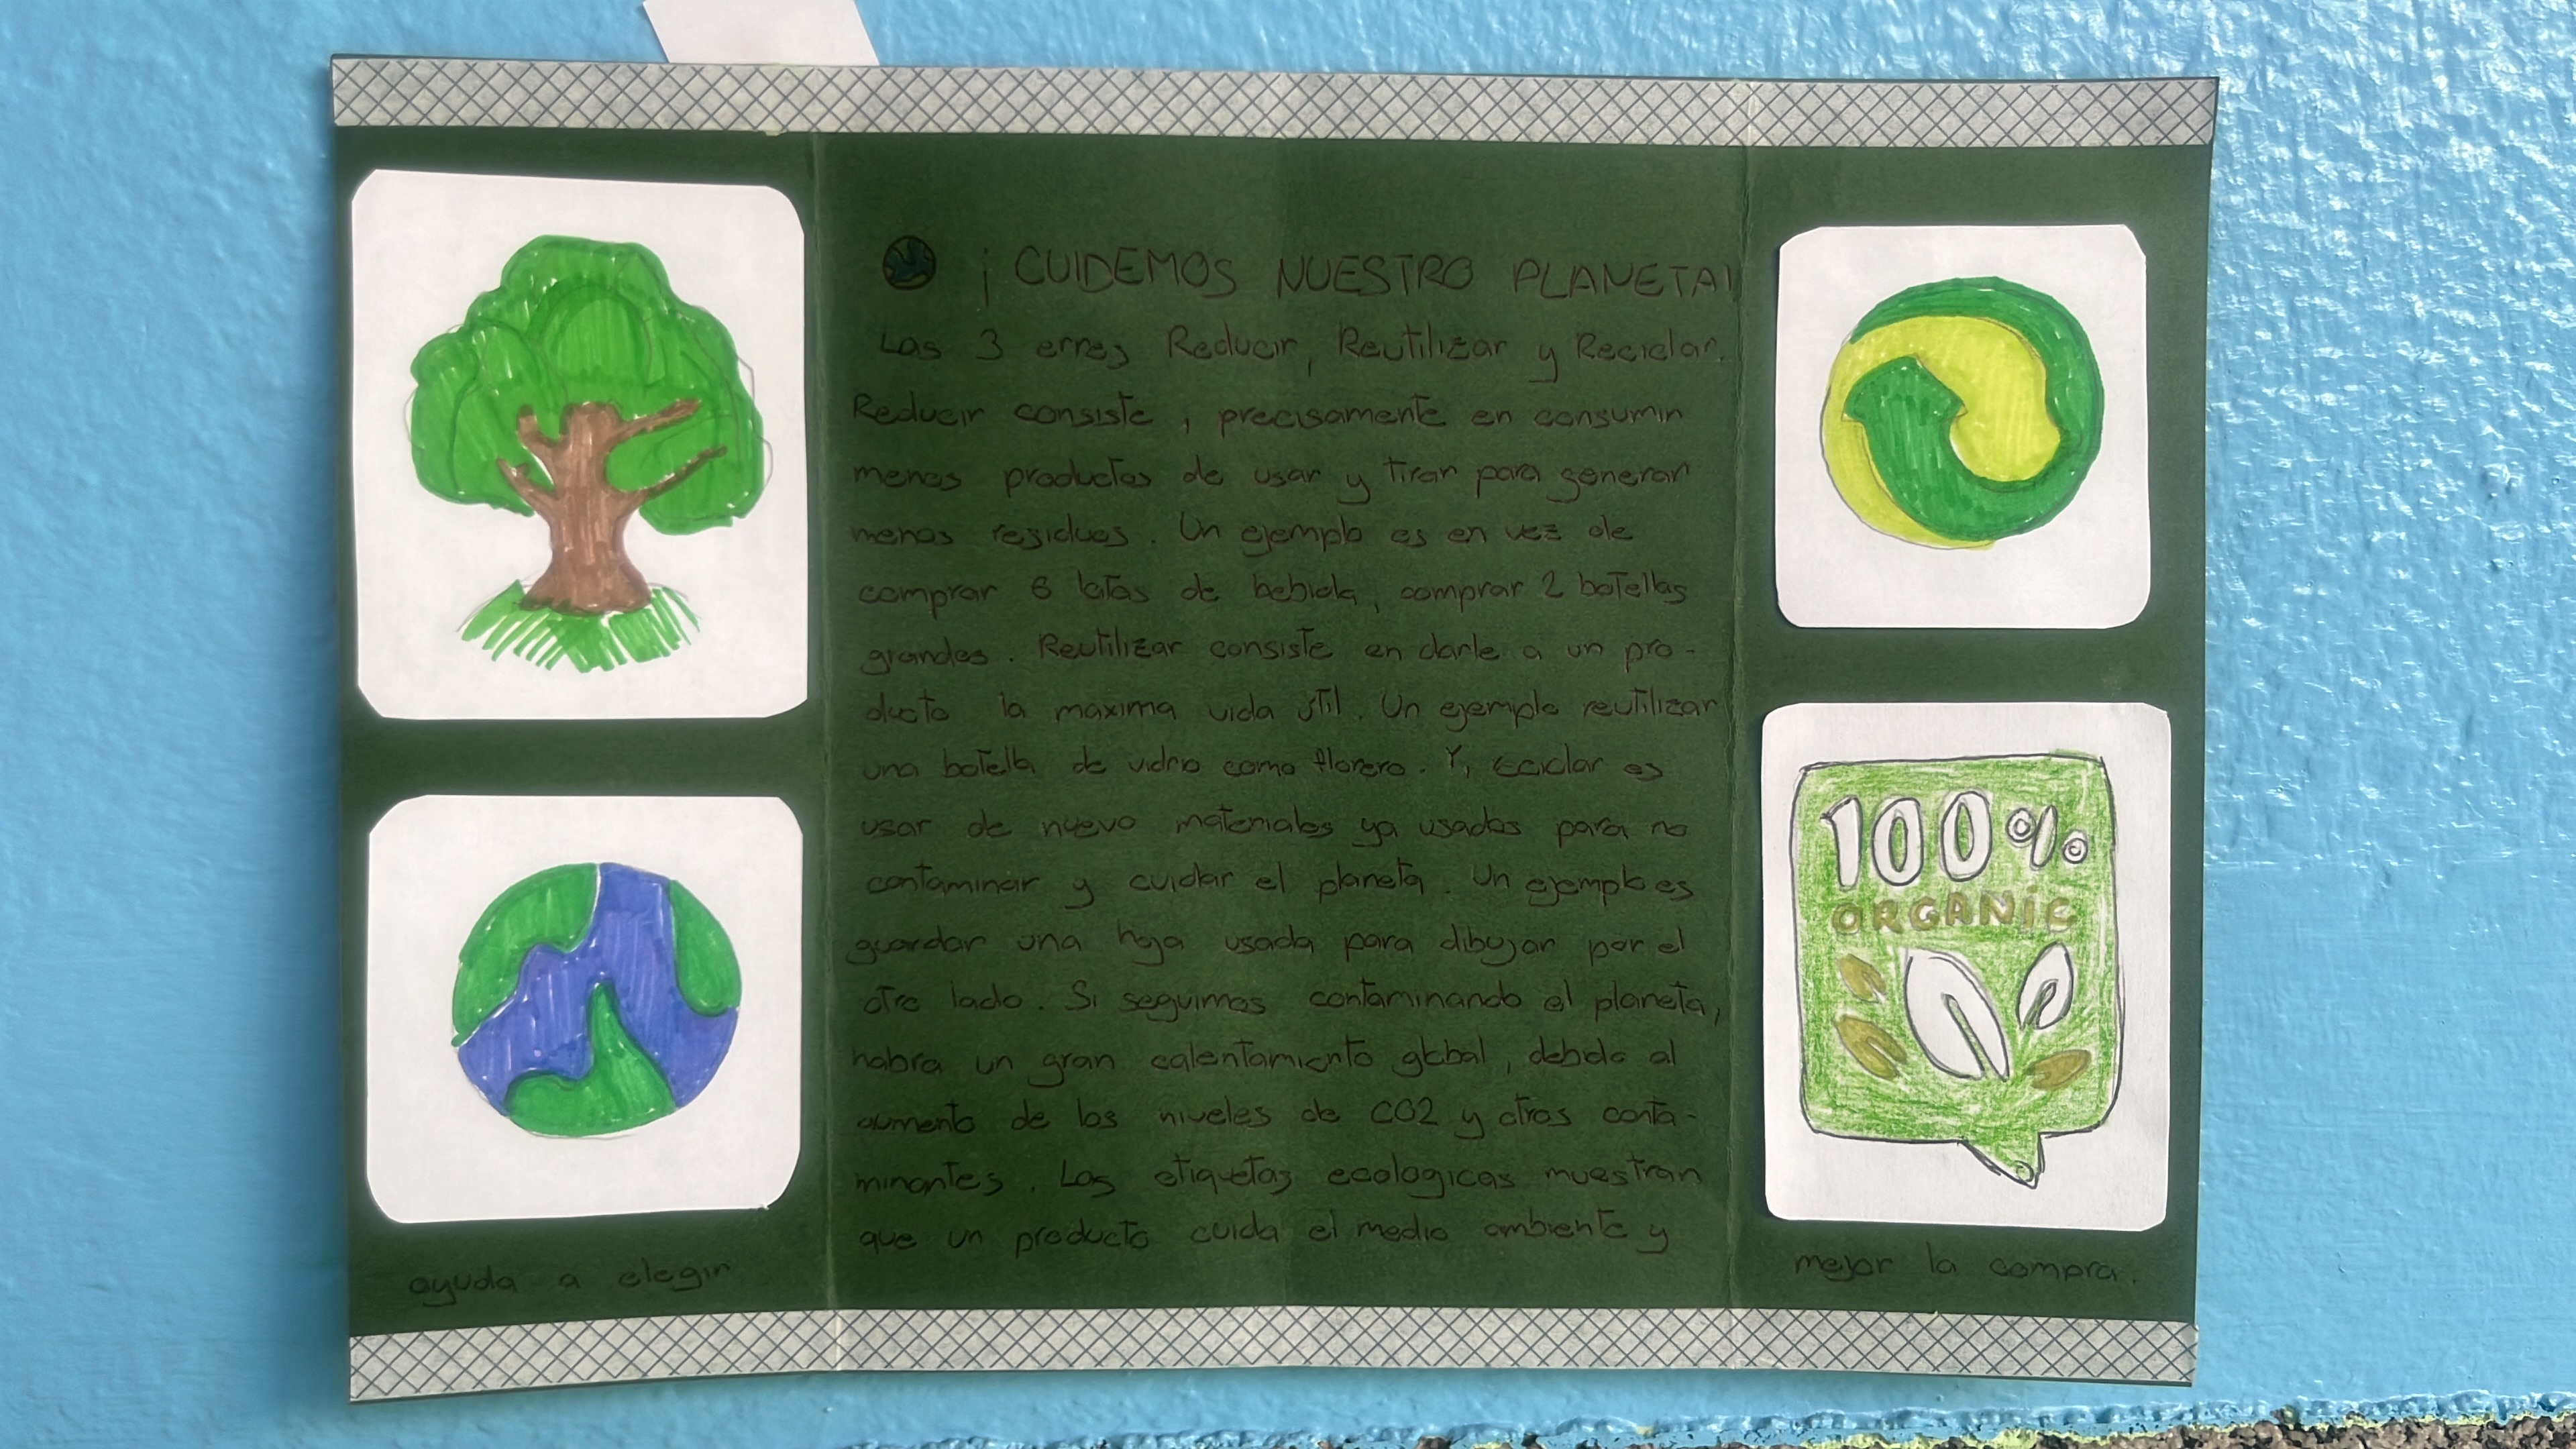 ¡ CUIDEMOS NUESTRO PLANETA!
Las 3 erres Reducir, Reutilizar y Reciclar.
Reducir consiste, precisamente en consumir
menos productos de usar y tirar para generar
menos residuos. Un ejemplo es en vez de
comprar 6 latas de bebida, comprar 2 botellas
grandes. Reutilizar consiste en darle a un pro-
ducto la maxima vida útil. Un ejemplo reutilizar
una botella de vidrio como florero. Y, eciclar es
usar de nuevo materiales ya usados para no
contaminar y cuidar el planeta. Un ejemplo es
guardar una hoja usada para dibujar por el
otro lado. Si seguimos contaminando el planeta,
habra un gran calentamiento global, debido al
aumento de los niveles de CO2 y otros conta-
minantes. Las etiquetas ecologicas muestran
que un producto cuida el medio ambiente y
ayuda a elegir
mejor la compra.
100%
ORGANiC